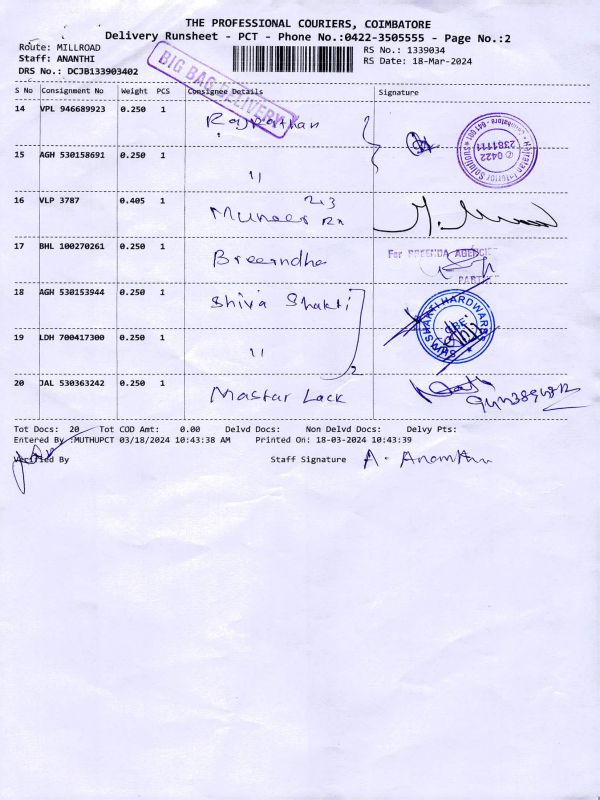 THE PROFESSIONAL COURIERS, COIMBATORE
Delivery Runsheet - PCT - Phone No.:0422-3505555 - Page No.:2
Route: MILLROAD
RS No.: 1339034
Staff: ANANTHI
RS Date: 18-Mar-2024
DRS No.: DCJB133903402
BIG BAG DELIVERY
S No Consignment No Weight PCS Consignee Details Signature
14 VPL 946689923 0.250 1 Rajasthan
15 AGH 530158691 0.250 1 "
Interior Solutions
Coimbatore - 641 001
0422 2381111
16 VLP 3787 0.405 1 Muneer
17 BHL 100270261 0.250 1 Breerndha
For BREENDA AGENCIES
18 AGH 530153944 0.250 1 Shiva Shakti
SHIVSHAKTI HARDWARES
CBE
19 LDH 700417300 0.250 1 "
20 JAL 530363242 0.250 1 Mastar Lack
Tot Docs: 20 Tot COD Amt: 0.00 Delvd Docs: Non Delvd Docs: Delvy Pts:
Entered By :MUTHUPCT 03/18/2024 10:43:38 AM Printed On: 18-03-2024 10:43:39
Verified By Staff Signature A. Ananthi